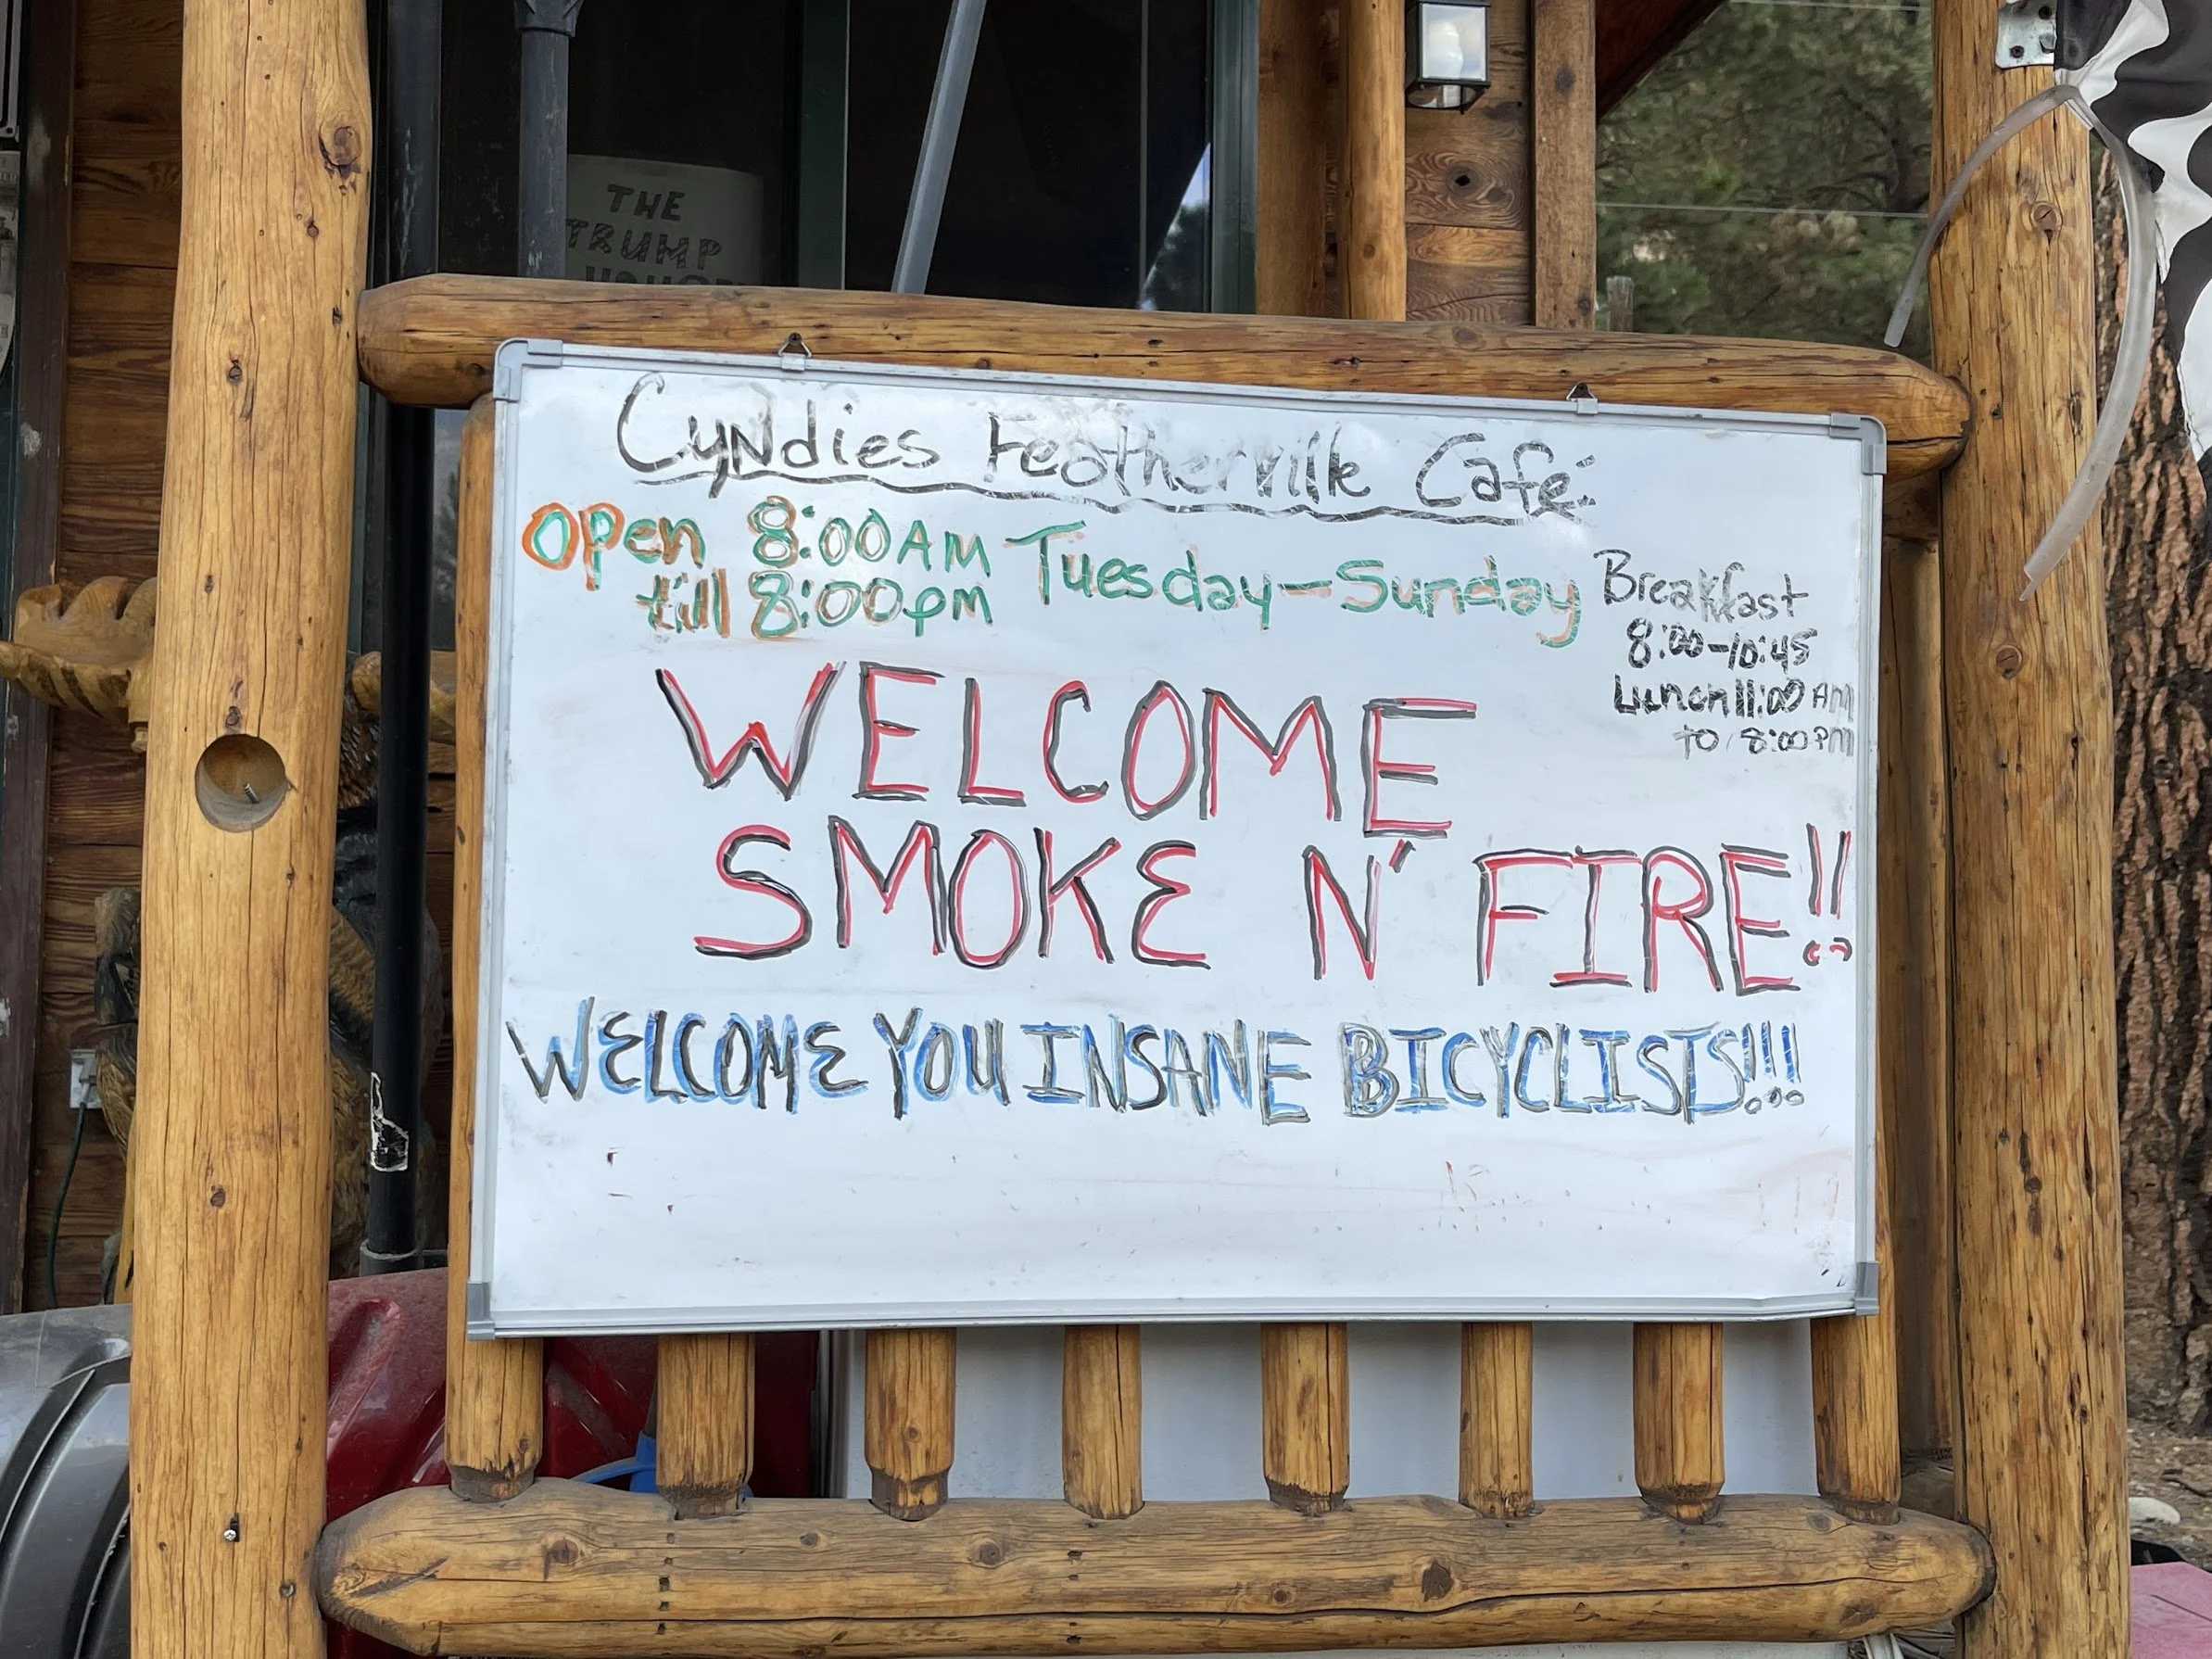 THE
TRUMP
HOUSE
Cyndies Featherville Cafe:
Open 8:00AM Tuesday-Sunday
till 8:00pm
Breakfast
8:00-10:45
Lunch 11:00 AM
to 8:00PM
WELCOME
SMOKE N' FIRE!!
WELCOME YOU INSANE BICYCLISTS!!!